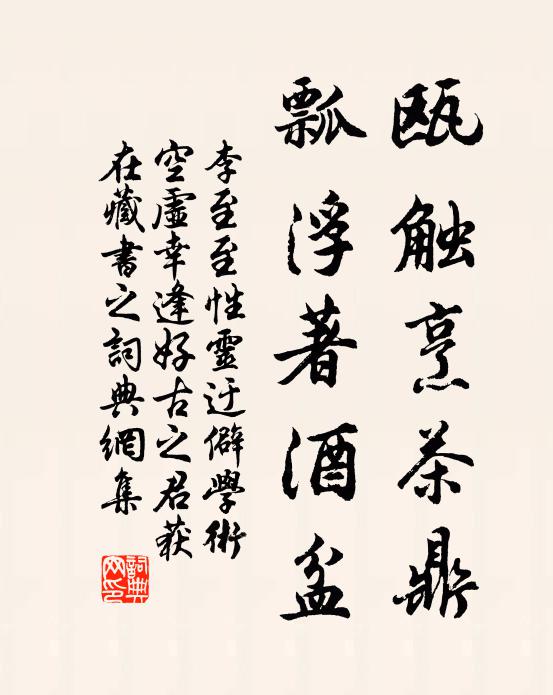 瓯触烹茶鼎
瓢浮著酒盆
李至至性靈迂僻學術
空虛幸逢好古之君获
在藏書之詞典網集
詞典网印